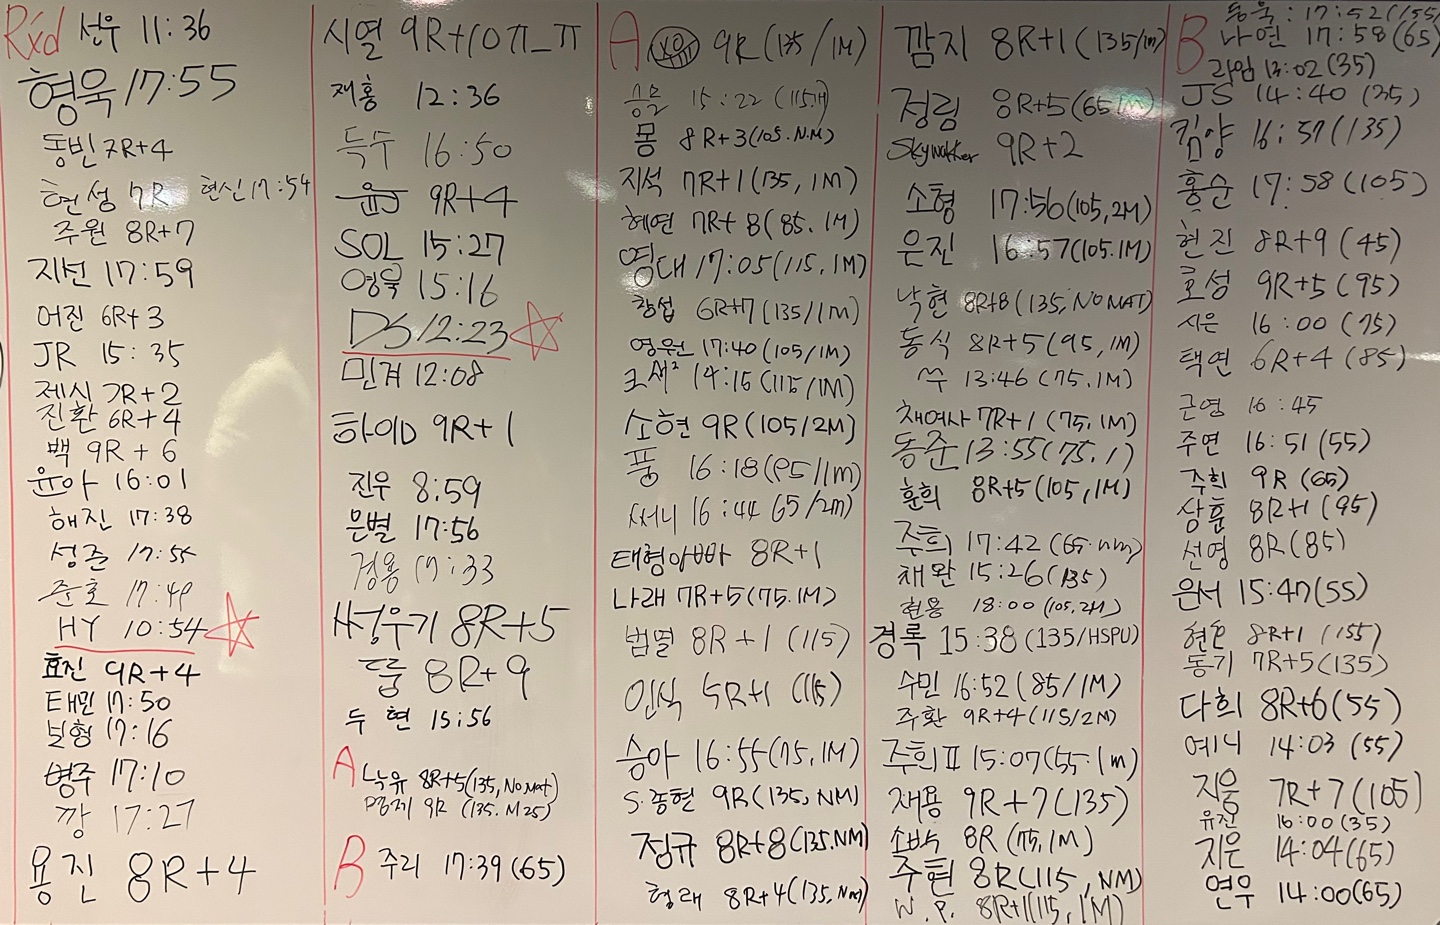 Rxd 선우 11:36
형욱 17:55
동빈 7R+4
현성 7R 현신 17:54
주원 8R+7
지선 17:59
어진 6R+3
JR 15:35
제시 7R+2
진환 6R+4
백 9R+6
윤아 16:01
해진 17:38
성준 17:55
준호 17:49
HY 10:54
효진 9R+4
태민 17:50
보형 17:16
병주 17:10
깡 17:27
용진 8R+4
시열 9R+10 ㅠ_ㅠ
재홍 12:36
득수 16:50
윤J 9R+4
SOL 15:27
영욱 15:16
DS 12:23
민겨 12:08
하이D 9R+1
진우 8:59
은별 17:56
경용 17:33
성우기 8R+5
뚭 8R+9
두현 15:56
A 낙유 8R+5(135, No Mat)
9R (135. M25)
B 주리 17:39 (65)
A 9R (135/1M)
승모 15:22
몽 8R+3(105.N.M)
지석 7R+1(135, 1M)
혜연 7R+8(85. 1M)
영대 17:05(115, 1M)
창섭 6R+7(135/1M)
영원 17:40(105/1M)
14:15(115/1M)
소현 9R(105/2M)
풍 16:18(95/1m)
써니 16:44 (65/2m)
태형아빠 8R+1
나래 7R+5(75.1M)
범열 8R+1 (115)
인식 5R+1 (115)
승아 16:55(75,1M)
S.종현 9R(135, NM)
정규 8R+8(135.NM)
형래 8R+4(135, Nm)
깜지 8R+1(135/1m)
정림 8R+5(65 1M)
Skywalker 9R+2
소형 17:56(105,2M)
은진 16:57(105.1M)
낙현 8R+8(135, NO MAT)
동식 8R+5(95,1M)
쑤 13:46 (75.1M)
채여사 7R+1 (75,1M)
동준 13:55(75.1)
훈희 8R+5(105,1M)
주희 17:42 (65.nm)
채완 15:26(135)
현용 18:00 (105,2M)
경록 15:38(135/HSPU)
수민 16:52(85/1M)
주환 9R+4(115/2M)
주희Ⅱ 15:07(55.1m)
재용 9R+7(135)
소반수 8R (75,1M)
주현 8R(115, NM)
W.P. 8R+1(115,1M)
B 동욱: 17:52(155)
나연 17:58(65)
라임 13:02(35)
JS 14:40 (35)
김양 16:57(135)
홍순 17:58(105)
현진 8R+9 (45)
효성 9R+5(95)
시은 16:00 (75)
택연 6R+4 (85)
근영 16:45
주연 16:51(55)
주희 9R (65)
상훈 8R+1 (95)
선영 8R(85)
은서 15:47(55)
8R+1 (155)
동기 7R+5(135)
다희 8R+6(55)
예니 14:03 (55)
지웅 7R+7(105)
유진 16:00(35)
지은 14:04(65)
연우 14:00(65)